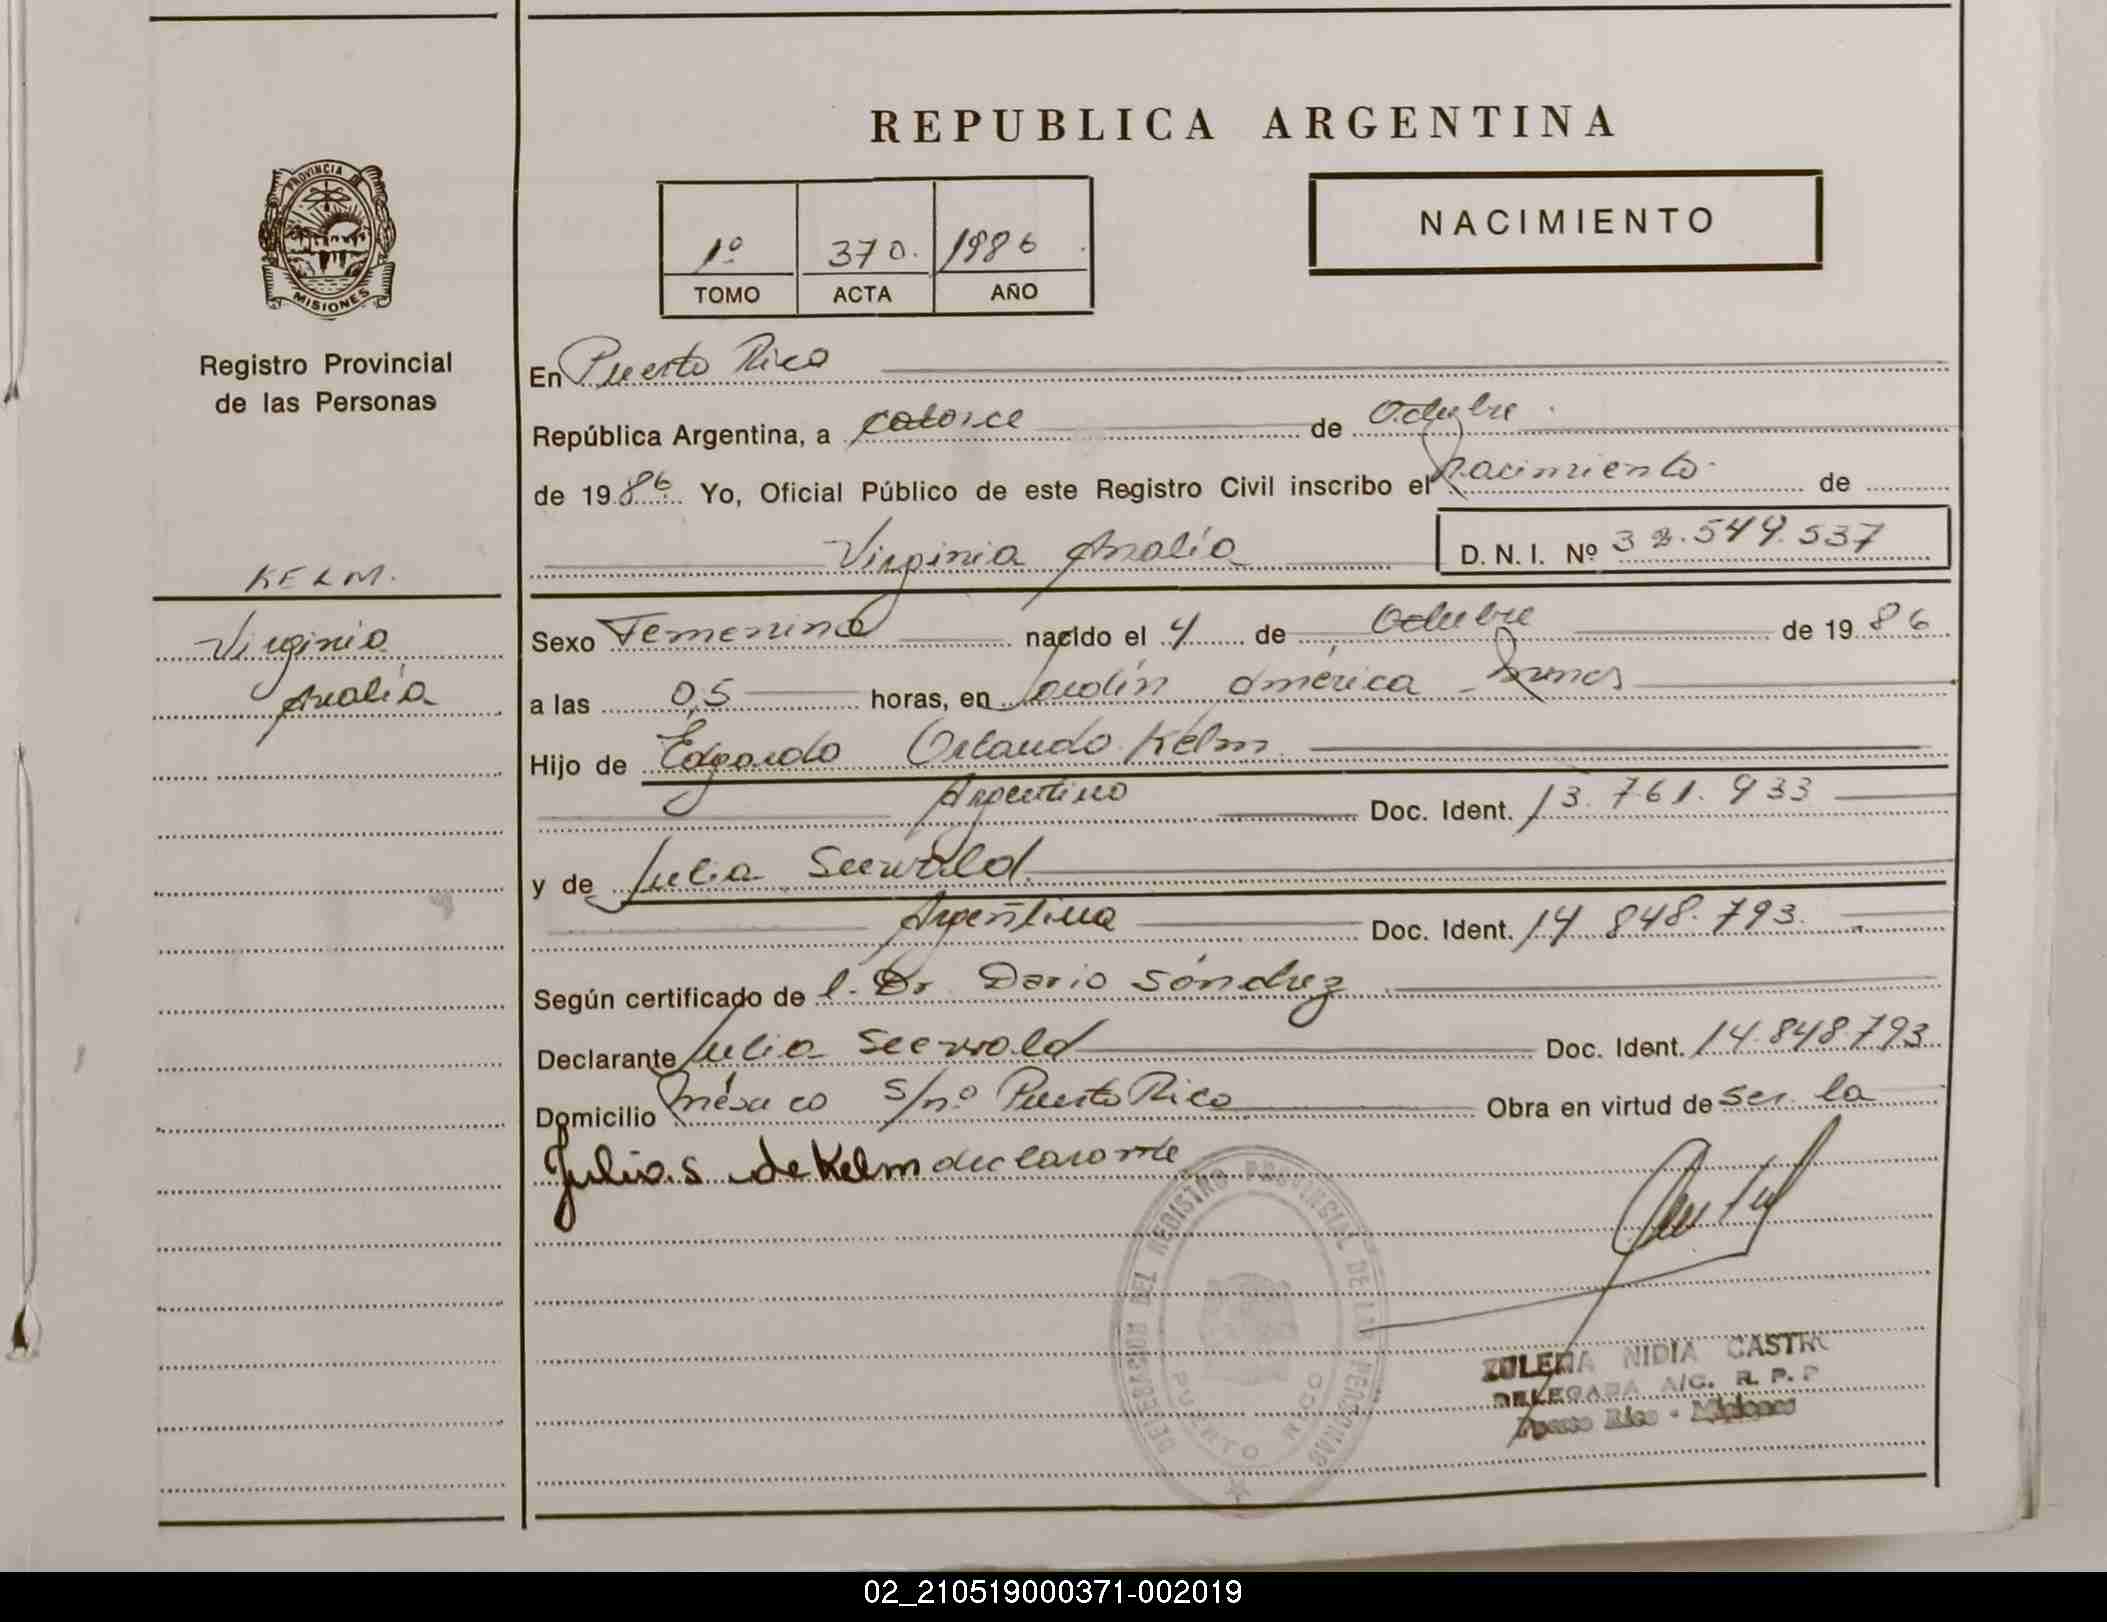 REPUBLICA ARGENTINA
PROVINCIA DE
MISIONES
1º 370. 1986
TOMO ACTA AÑO
NACIMIENTO
Registro Provincial
de las Personas
KELM.
Virginia
Analía
En Puerto Rico
República Argentina, a catorce de Octubre.
de 1986. Yo, Oficial Público de este Registro Civil inscribo el nacimiento de
Virginia Analía D. N. I. Nº 32.549.537
Sexo Femenino nacido el 4 de Octubre de 1986
a las 0,5 horas, en Jardín América
Hijo de Edgardo Orlando Kelm
Argentino Doc. Ident. 13.761.933
y de Julia Seewald
Argentina Doc. Ident. 14.848.793.
Según certificado de l. Dr Dario Sánchez
Declarante Julia Seewald Doc. Ident. 14.848.793
Domicilio México s/nº Puerto Rico Obra en virtud de ser la
Julia.S de Kelm declarante
DELEGACION DEL REGISTRO PROVINCIAL DE LAS PERSONAS
PUERTO RICO
ZULEMA NIDIA CASTRO
DELEGADA A/C. R. P. P
Puerto Rico - Misiones
02_210519000371-002019